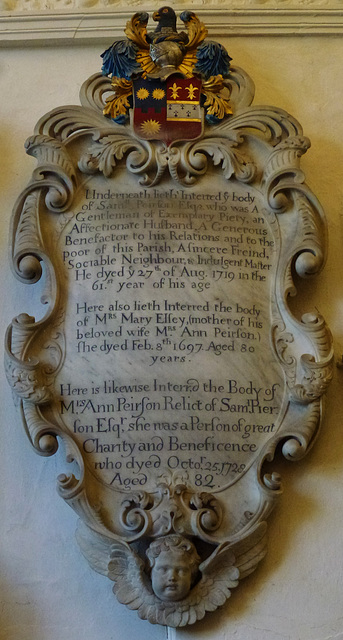 Underneath lieth Interred yͤ body
of Samˡ Peirson Esqʳ who was A
Gentleman of Exemplary Piety, an
Affectionate Husband, A Generous
Benefactor to his Relations and to the
poor of this Parish, A sincere Freind,
Sociable Neighbour, & Indulgent Master
He dyed yͤ 27ᵗʰ of Aug. 1719 in the
61.ˢᵗ year of his age
Here also lieth Interred the body
of Mʳˢ Mary Elſey, (mother of his
beloved wife Mʳˢ Ann Peirſon,)
ſhe dyed Feb. 8ᵗʰ 1697. Aged 80
years.
Here is likewise Interrd the Body of
Mʳˢ Ann Peirſon Relict of Samˡ Peir
ſon Eſqʳ. she was a Perſon of great
Charity and Beneficence
who dyed Octoʳ 25, 1728
Aged 82.